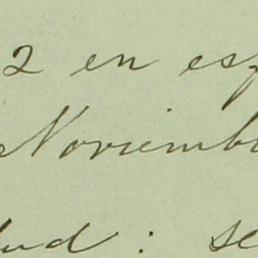 2 en esp
Noviemb
lud : se